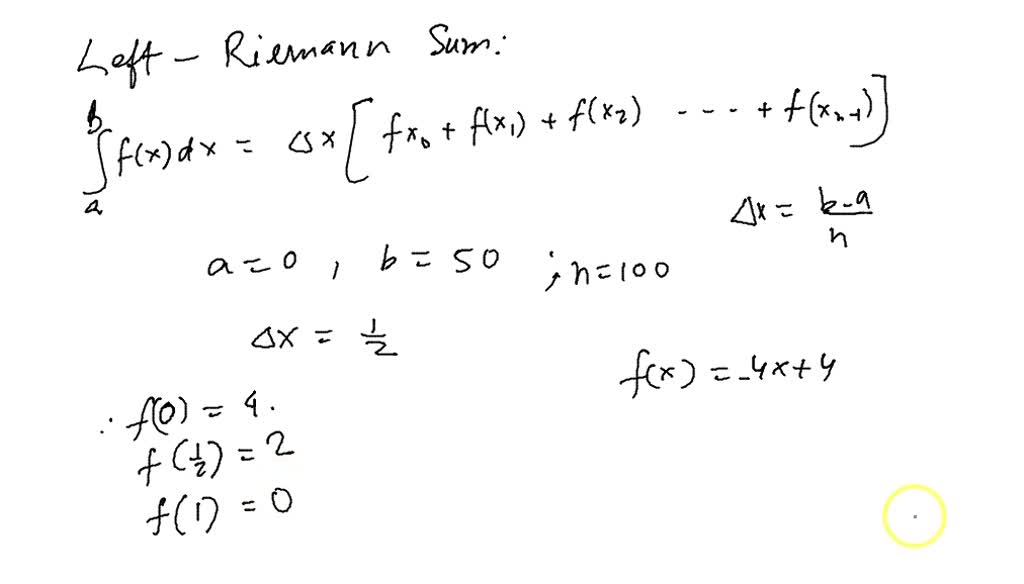 Left - Riemann Sum:
∫ₐᵇ f(x)dx = Δx[fx₀ + f(x₁) + f(x₂) ---- + f(xₙ₋₁)]
Δx = b-a/n
a=0, b=50 ; n=100
Δx = 1/2
f(x) = -4x+4
∴ f(0) = 4.
f(1/2) = 2
f(1) = 0